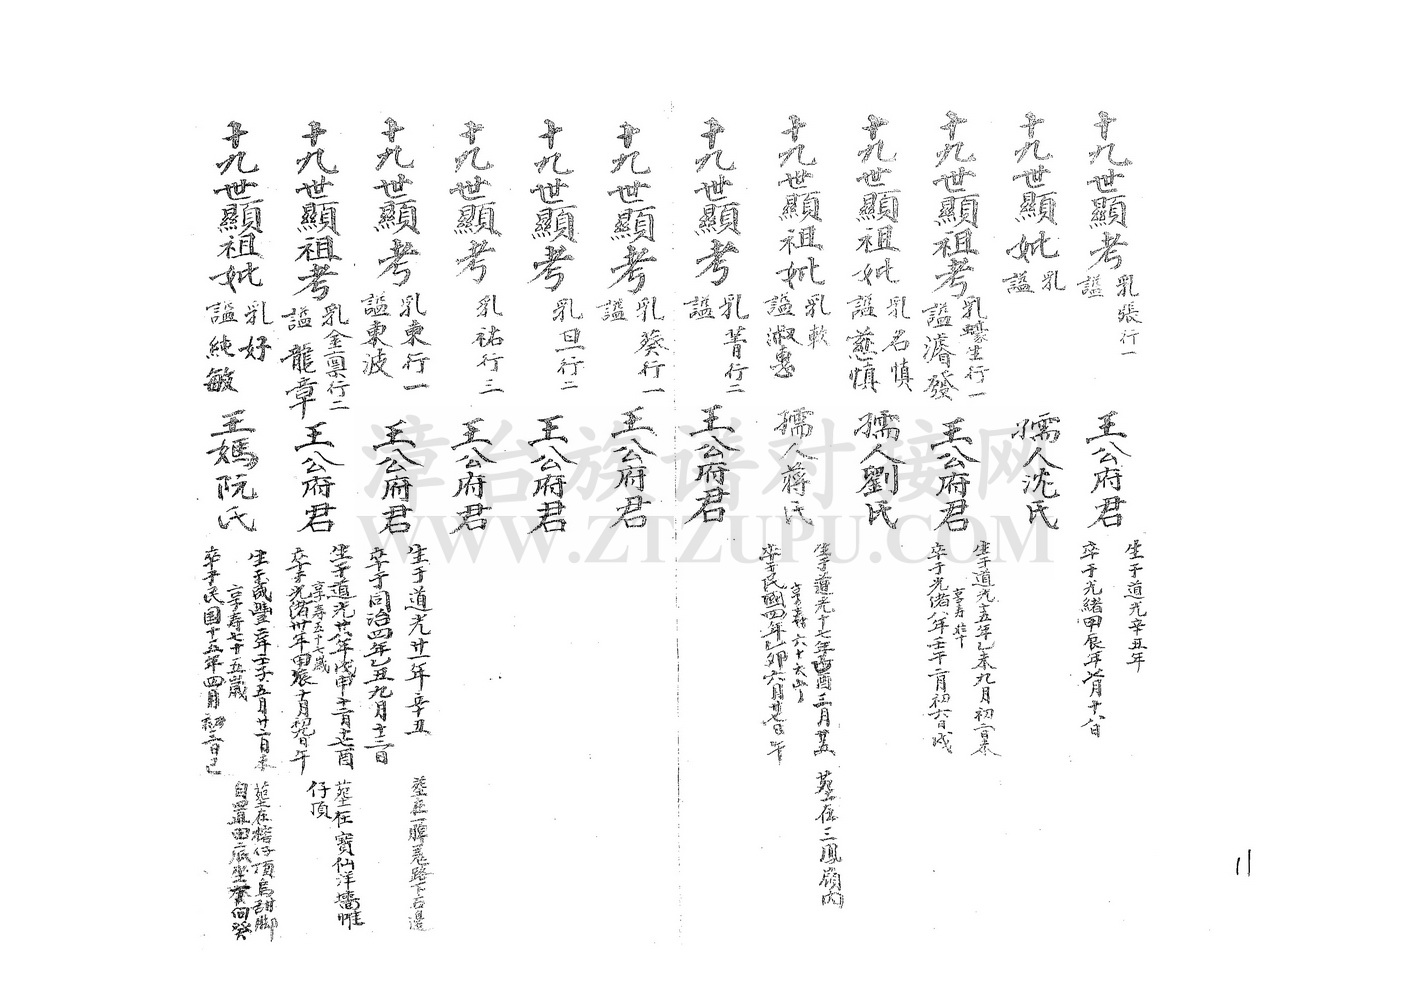 十九世顯考 乳張行一 諡 王公府君 生于道光辛丑年 卒于光緒甲辰年 月十八日
十九世顯妣 乳 諡 孺人沈氏
十九世顯祖考 乳蠔生行一 諡濬發 王公府君 生于道光十五年乙未九月初二日未 享寿 卒于光緒八年壬午二月初六日戌
十九世顯祖妣 乳名慎 諡慈慎 孺人劉氏
十九世顯祖妣 乳軟 諡淑惠 孺人蔣氏 生于道光十七年 酉三月廿五 享寿六十 卒于民國四年乙卯六月廿七日午 墓在三鳳嶺內
十九世顯考 乳菁行二 諡 王公府君
十九世顯考 乳葵行一 諡 王公府君
十九世顯考 乳 行二 王公府君
十九世顯考 乳祐行三 王公府君
十九世顯考 乳東行一 諡東波 王公府君 生于道光廿一年辛丑 卒于同治四年乙丑九月十三日 墓在 路下右邊
十九世顯祖考 乳金稟行二 諡龍章 王公府君 生于道光廿八年戊申十二月十七酉 享寿五十七歲 卒于光緒卅年甲辰十月初九日午 在寶仙洋 仔頂
十九世顯祖妣 乳好 諡純敏 王媽阮氏 生于咸豐二年壬子五月廿二日未 享寿七十五歲 卒于民国十五年四月初三日巳 在 仔頂烏甜腳 自置田 坐 向癸
11
漳台族谱对接网
WWW.ZTZUPU.COM